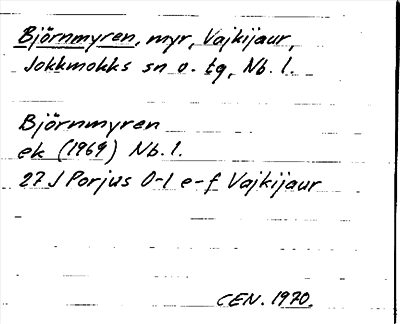 Björnmyren, myr, Vajkijaur,
Jokkmokks sn o. tg, Nb. l.
Björnmyren
ek (1969) Nb. l.
27 J Porjus 0-1 e-f Vajkijaur
CEN. 1970.